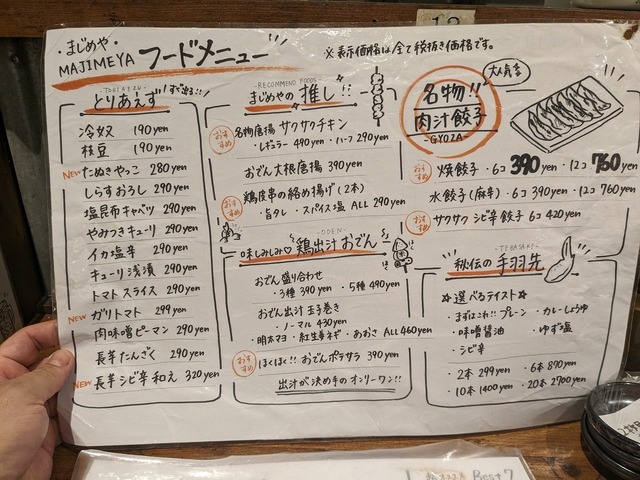 12
・まじめや・
MAJIMEYA フードメニュー
※表示価格は全て税抜き価格です。
-TORIAEZU-
とりあえず
すぐ出る!!
冷奴 190yen
枝豆 190yen
New たぬきやっこ 280yen
しらすおろし 290yen
塩昆布キャベツ 290yen
やみつきキューリ 290yen
イカ塩辛 290yen
キューリ浅漬 290yen
トマトスライス 290yen
New ガリトマト 299yen
肉味噌ピーマン 290yen
長芋たんざく 290yen
New 長芋シビ辛和え 320yen
-RECOMMEND FOODS-
まじめやの推し!!
おすすめ
名物唐揚サクサクチキン
・レギュラー 490yen ・ハーフ 290yen
おでん大根唐揚 390yen
おすすめ
鶏皮串の絡め揚げ(2本)
・旨タレ・スパイス塩 ALL 290yen
-ODEN-
味しみしみ♡鶏出汁おでん
おでん盛り合わせ
・3種 390yen ・5種 490yen
おでん出汁玉子巻き
・ノーマル 430yen
・明太マヨ・紅生姜ネギ・あおさ ALL 460yen
おすすめ
ほくほく!!おでんポテサラ 390yen
出汁が決め手のオンリーワン!!
名物!!
肉汁餃子
-GYOZA-
大人気
おすすめ
焼餃子・6コ 390yen ・12コ 760yen
水餃子(麻辛)・6コ 390yen ・12コ 760yen
おすすめ
サクサクシビ辛餃子 6コ 420yen
-TEBASAKI-
秘伝の手羽先
☆選べるテイスト☆
・まずはこれ!!プレーン ・カレーしょうゆ
・味噌醤油 ・ゆず塩
・シビ辛
・2本 299yen ・6本 870yen
・10本 1400yen ・20本 2700yen
Best 7